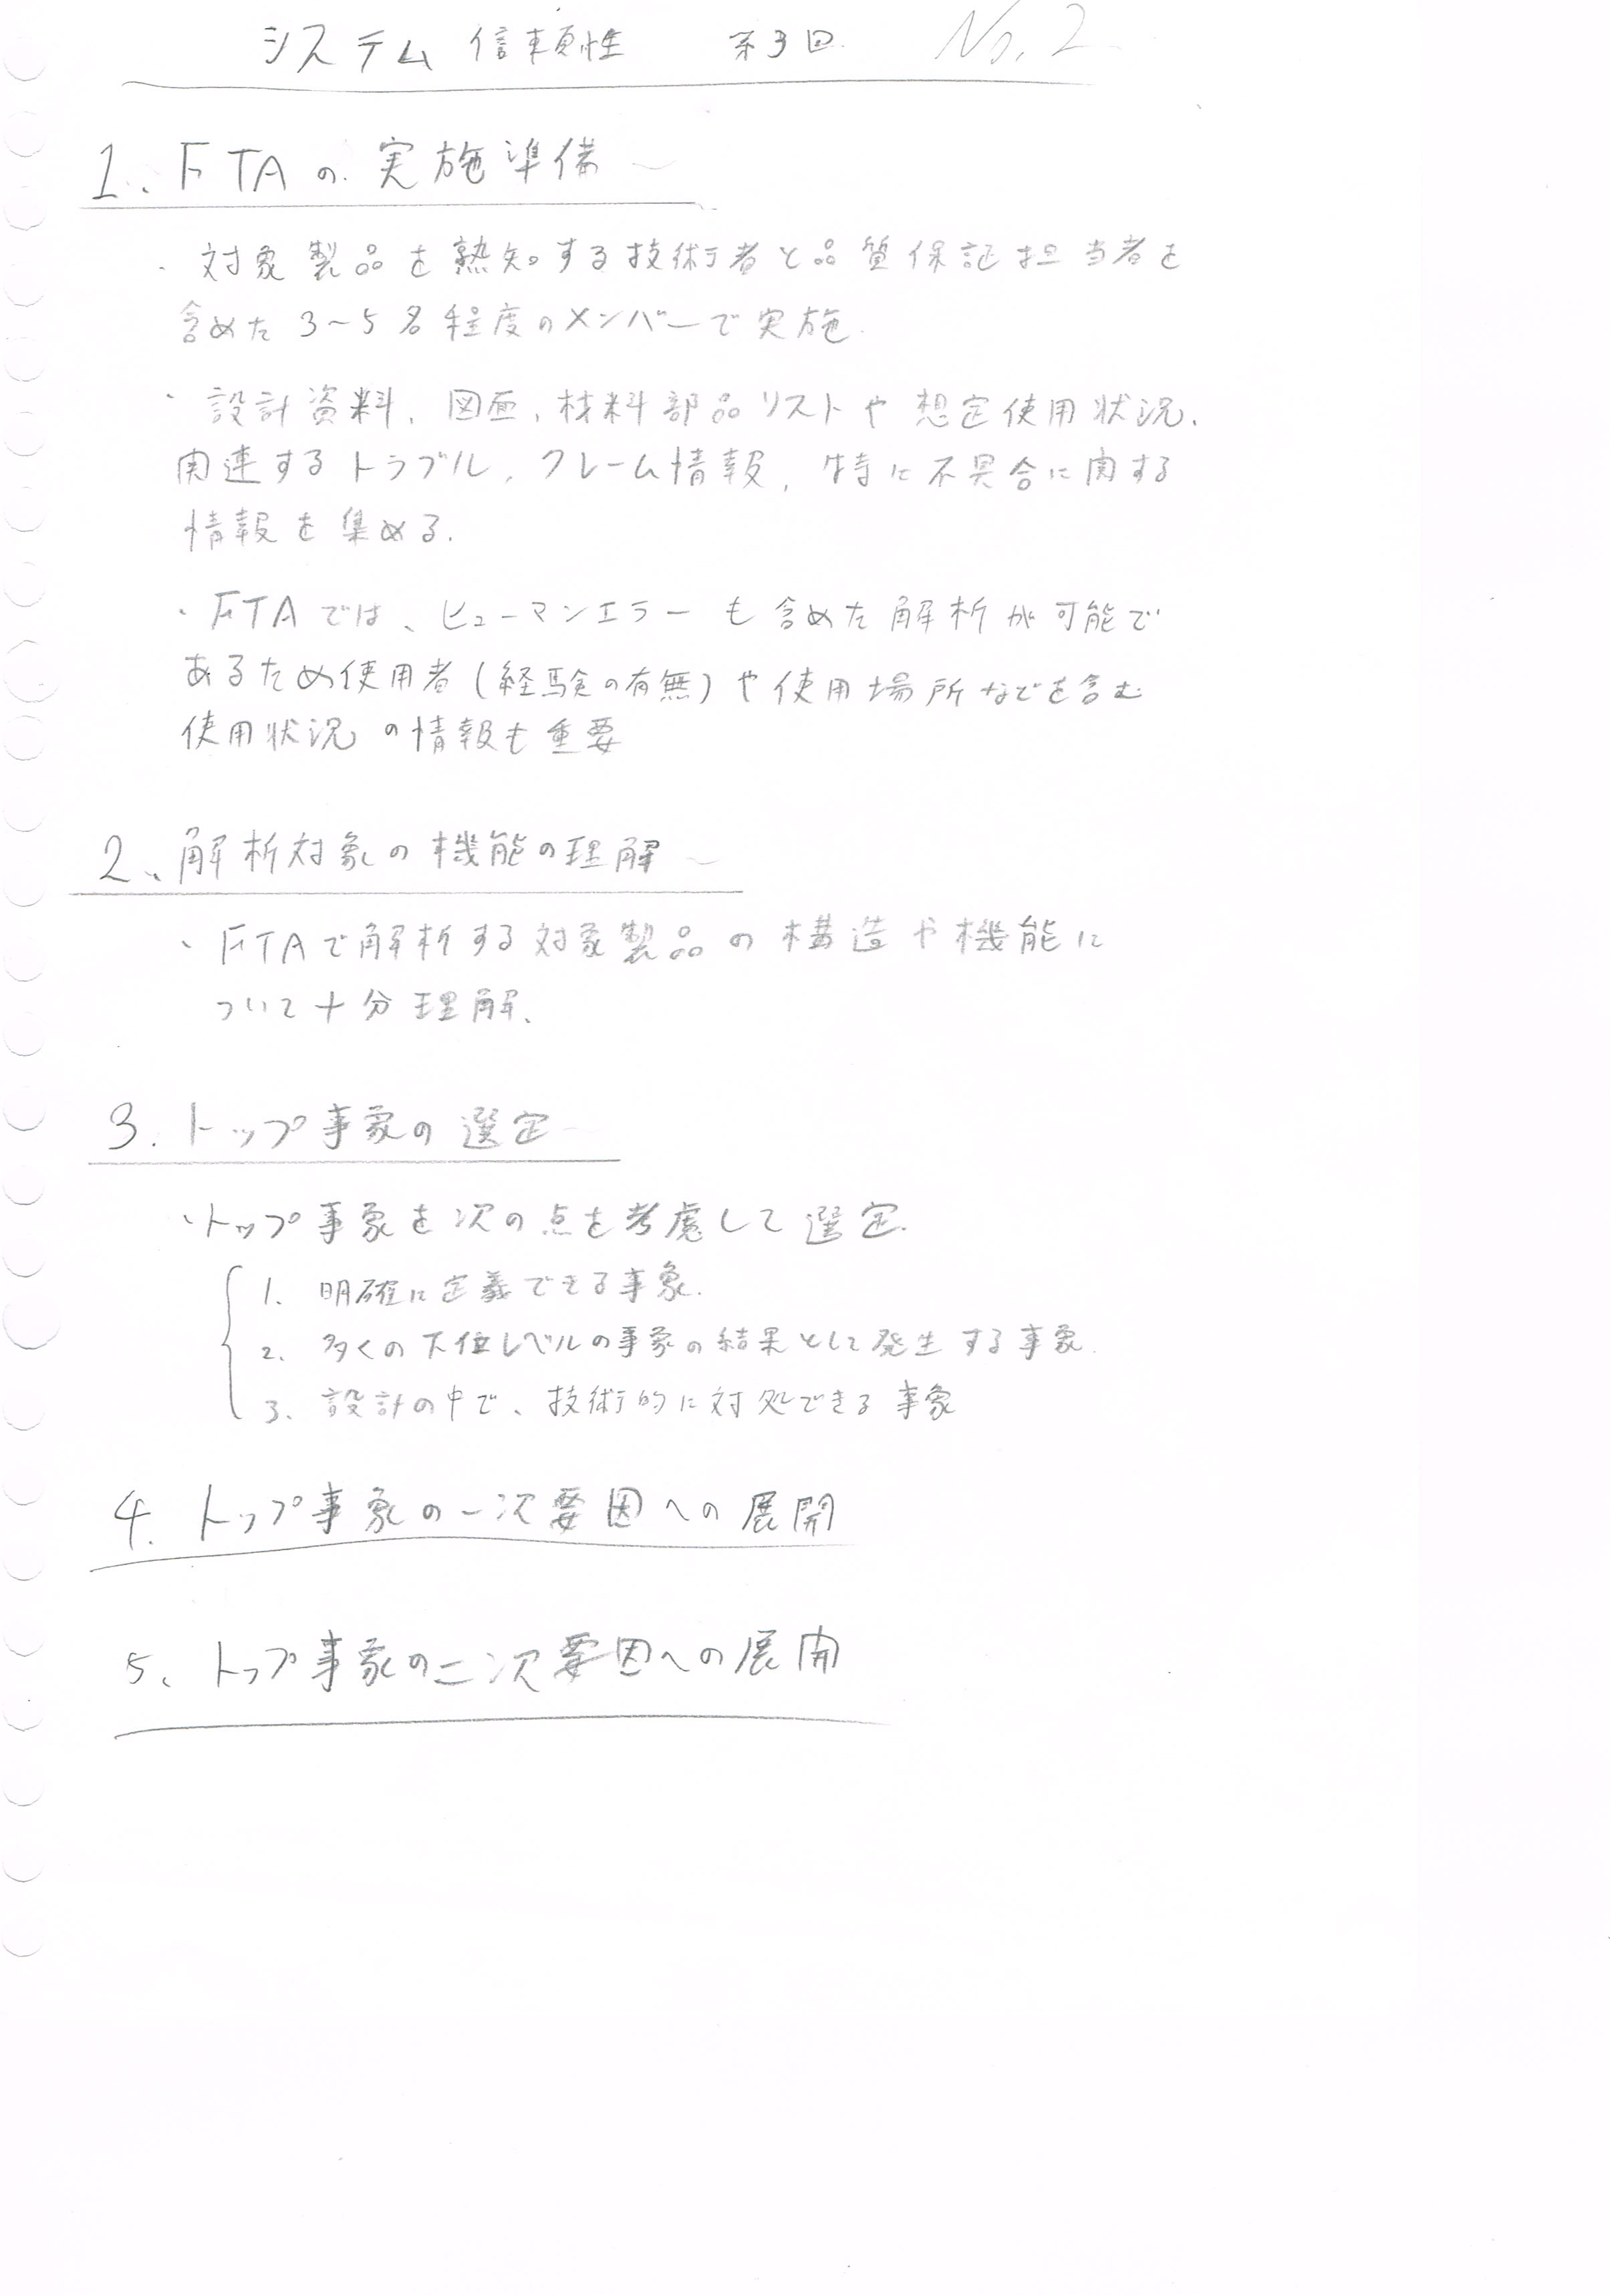 システム 信頼性 第3回. No.2
1、FTAの実施準備
・対象製品を熟知する技術者と品質保証担当者を
含めた3〜5名程度のメンバーで実施.
・設計資料、図面、材料部品リストや想定使用状況、
関連するトラブル、クレーム情報、特に不具合に関する
情報を集める.
・FTAでは、ヒューマンエラーも含めた解析が可能で
あるため使用者(経験の有無)や使用場所などを含む
使用状況の情報も重要
2、解析対象の機能の理解
・FTAで解析する対象製品の構造や機能に
ついて十分理解、
3.トップ事象の選定
・トップ事象を次の点を考慮して選定.
1. 明確に定義できる事象.
2. 多くの下位レベルの事象の結果として発生する事象.
3. 設計の中で、技術的に対処できる事象
4.トップ事象の一次要因への展開
5、トップ事象の二次要因への展開